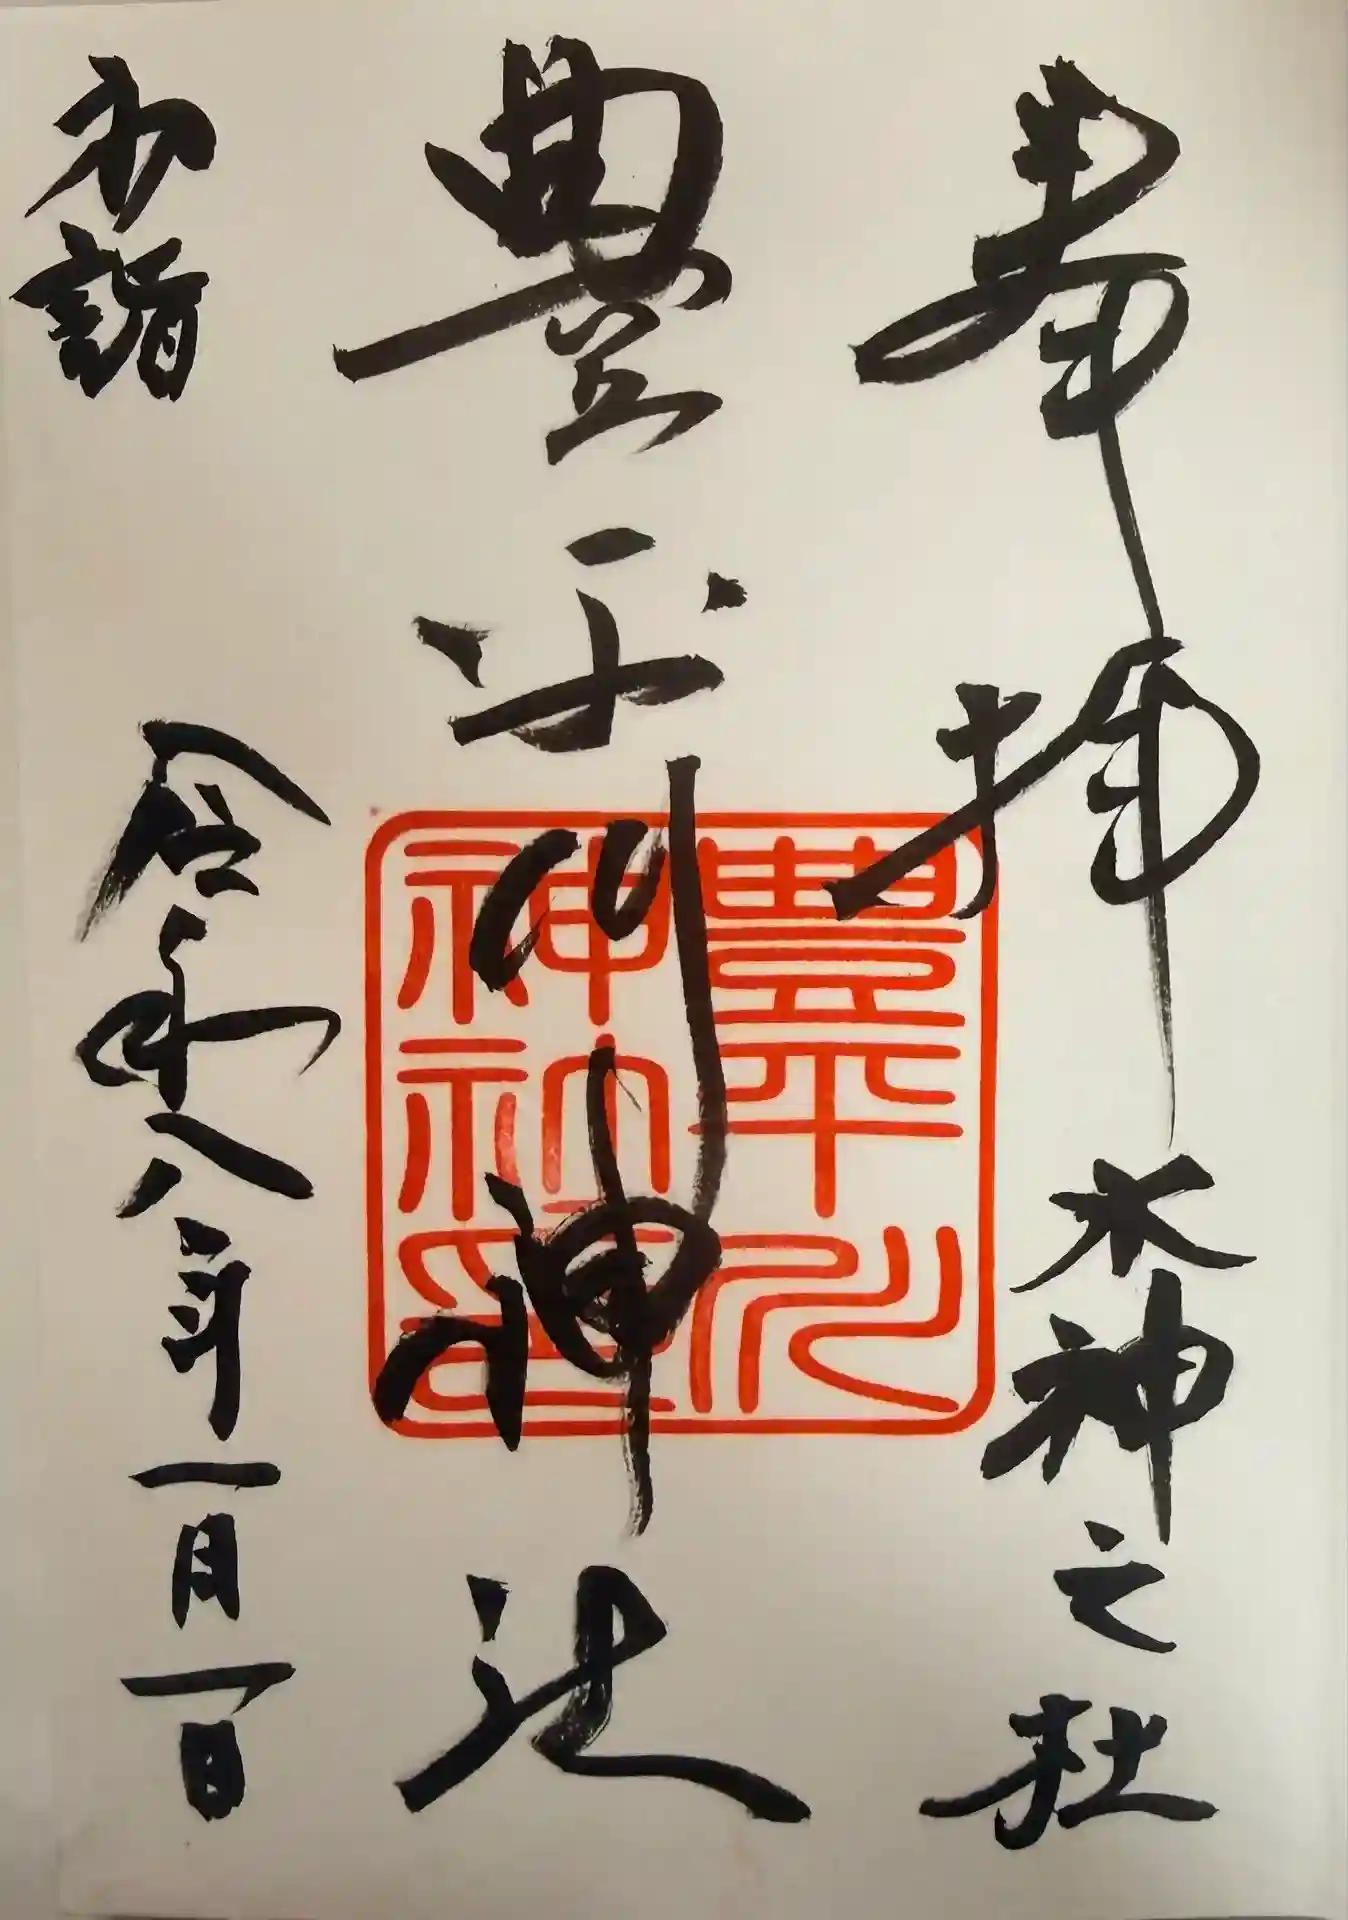 奉拝
水神之杜
豊平川神社
豊平川
神社印
初詣
令和八年一月一日